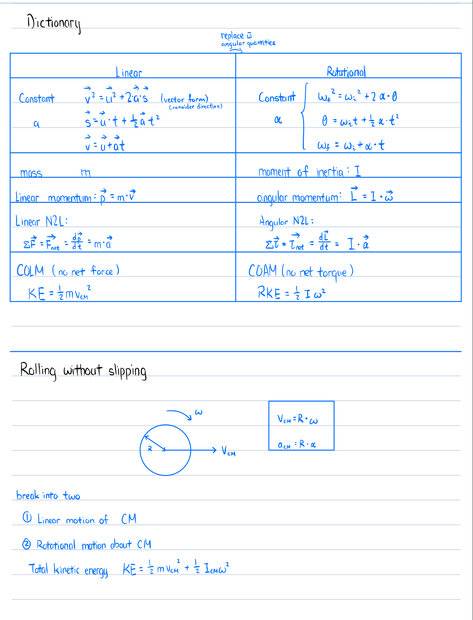 Dictionary
replace w
angular quantities
Linear
Rotational
Constant
a
v⃗² = u⃗² + 2a⃗·s⃗ (vector form)
(consider direction)
s⃗ = u⃗·t + ½a⃗t²
v⃗ = u⃗ + at
Constant
α
ω_f² = ω_i² + 2α·θ
θ = ω_i t + ½α·t²
ω_f = ω_i + α·t
mass m
moment of inertia : I
Linear momentum: p⃗ = m·v⃗
angular momentum: L⃗ = I·ω⃗
Linear N2L:
ΣF⃗ = F⃗_net = dp⃗/dt = m·a⃗
Angular N2L:
Στ⃗ = τ⃗_net = dL⃗/dt = I·α⃗
COLM (no net force)
COAM (no net torque)
KE = ½mv_CM²
RKE = ½Iω²
Rolling without slipping
ω
R
V_CM
V_CM = R·ω
a_CM = R·α
break into two
① Linear motion of CM
② Rotational motion about CM
Total kinetic energy KE = ½mv_CM² + ½I_CMω²